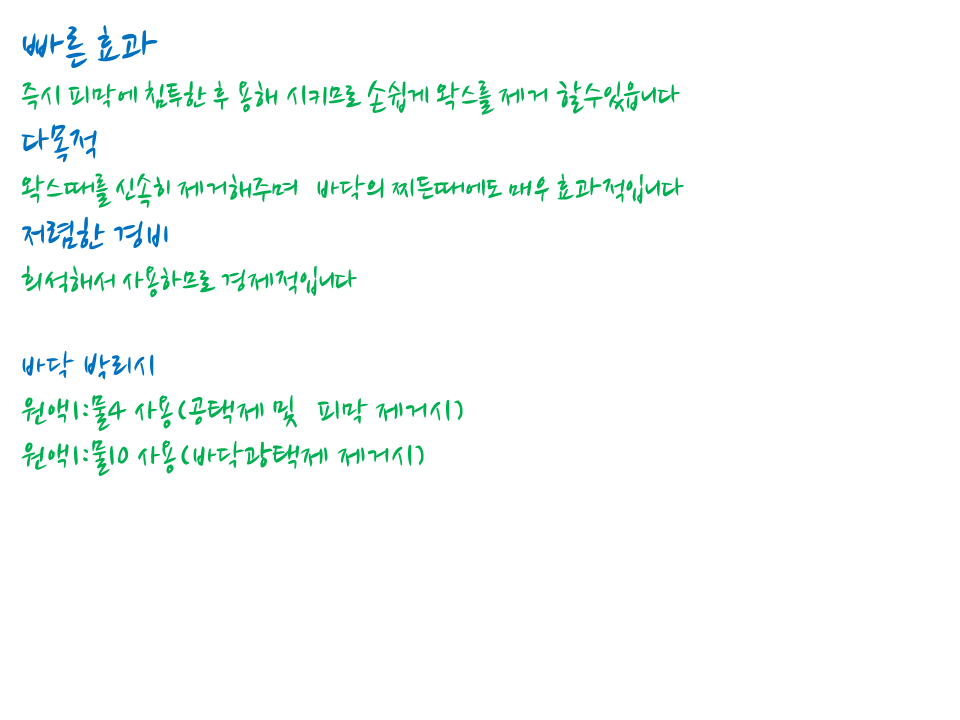 빠른 효과
즉시 피막에 침투한 후 용해 시키므로 손쉽게 왁스를 제거 할수있읍니다
다목적
왁스때를 신속히 제거해주며 바닥의 찌든때에도 매우 효과적입니다
저렴한 경비
희석해서 사용하므로 경제적입니다
바닥 박리시
원액1:물4 사용(공택제 및 피막 제거시)
원액1:물10 사용(바닥광택제 제거시)